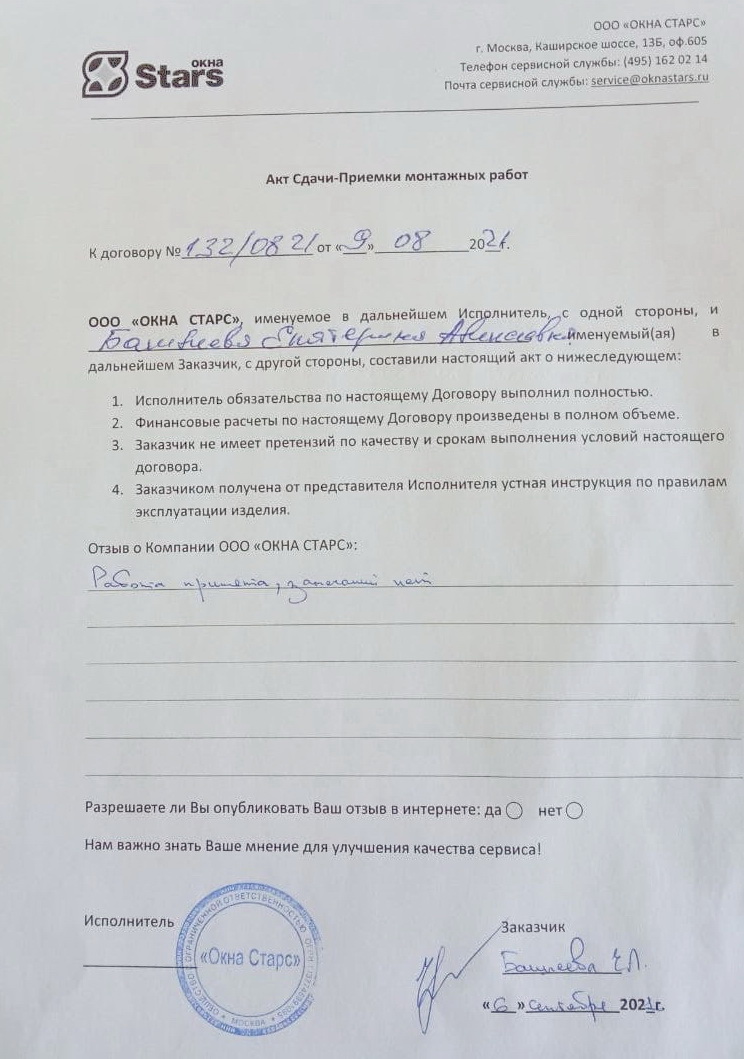 ОКНА
Stars
ООО «ОКНА СТАРС»
г. Москва, Каширское шоссе, 13Б, оф.605
Телефон сервисной службы: (495) 162 02 14
Почта сервисной службы: service@oknastars.ru
Акт Сдачи-Приемки монтажных работ
К договору № 132/0821 от «9» 08 2021г.
ООО «ОКНА СТАРС», именуемое в дальнейшем Исполнитель, с одной стороны, и
именуемый(ая) в
дальнейшем Заказчик, с другой стороны, составили настоящий акт о нижеследующем:
1. Исполнитель обязательства по настоящему Договору выполнил полностью.
2. Финансовые расчеты по настоящему Договору произведены в полном объеме.
3. Заказчик не имеет претензий по качеству и срокам выполнения условий настоящего
договора.
4. Заказчиком получена от представителя Исполнителя устная инструкция по правилам
эксплуатации изделия.
Отзыв о Компании ООО «ОКНА СТАРС»:
Работа принята, нет
Разрешаете ли Вы опубликовать Ваш отзыв в интернете: да нет
Нам важно знать Ваше мнение для улучшения качества сервиса!
Исполнитель
«Окна Старс»
МОСКВА
Заказчик
«6» сентября 2021г.